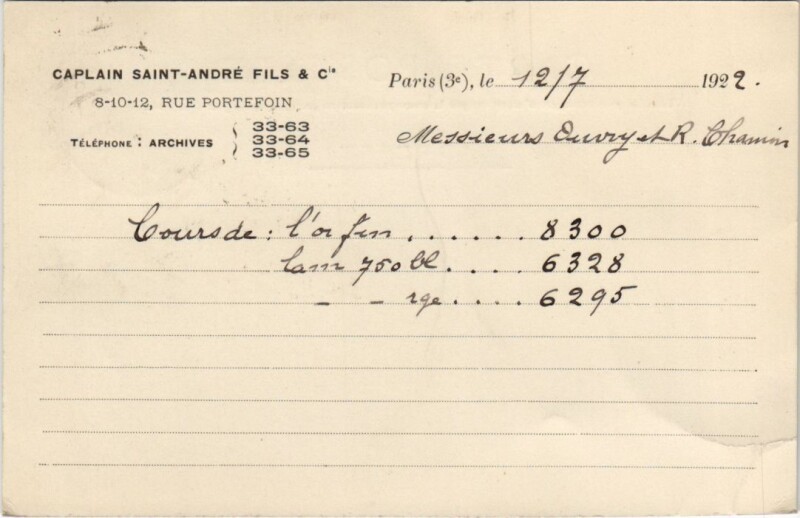 CAPLAIN SAINT-ANDRÉ FILS & Cie
8-10-12, RUE PORTEFOIN
TÉLÉPHONE : ARCHIVES { 33-63
33-64
33-65
Paris (3e), le 12/7 1922.
Messieurs Euvry et R. Chamin
Cours de : l'or fin . . . . . . 8300
lam 750 bl . . . . 6328
– – rge . . . . 6295